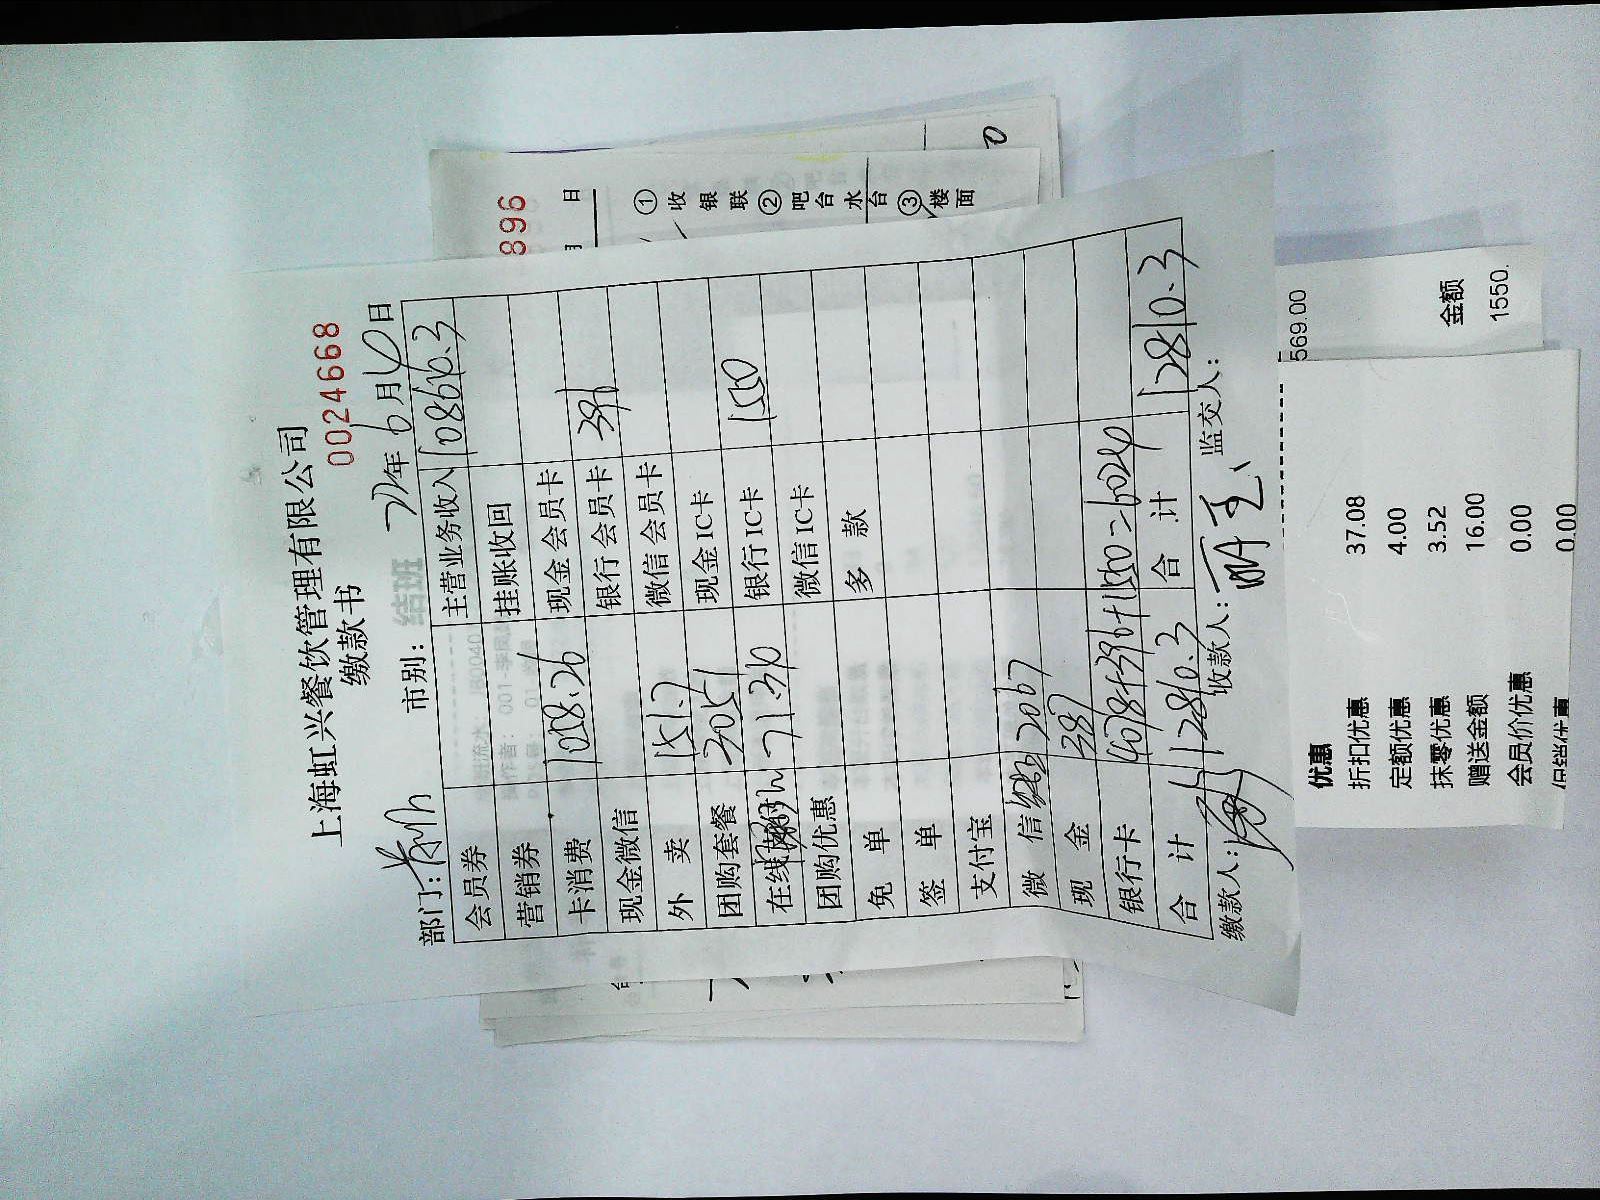 上海虹兴餐饮管理有限公司
缴款书
0024668
部门:
市别:
年6月10日
会员券 主营业务收入 10864.3
营销券 挂账收回
卡消费 1058.26 现金会员卡
现金微信 银行会员卡 396
外卖 151.7 微信会员卡
团购套餐 3051 现金IC卡
在线 71.34 银行IC卡 1550
团购优惠 微信IC卡
免单 多款
签单
支付宝
微信 2067
现金 387
银行卡 4078+396+1550=6024
合计 12810.3 合计 12810.3
缴款人: 收款人: 监交人:
结班
896
日
①收银联②吧台水台③楼面
569.00
金额
1550.
优惠
折扣优惠 37.08
定额优惠 4.00
抹零优惠 3.52
赠送金额 16.00
会员价优惠 0.00
促销优惠 0.00